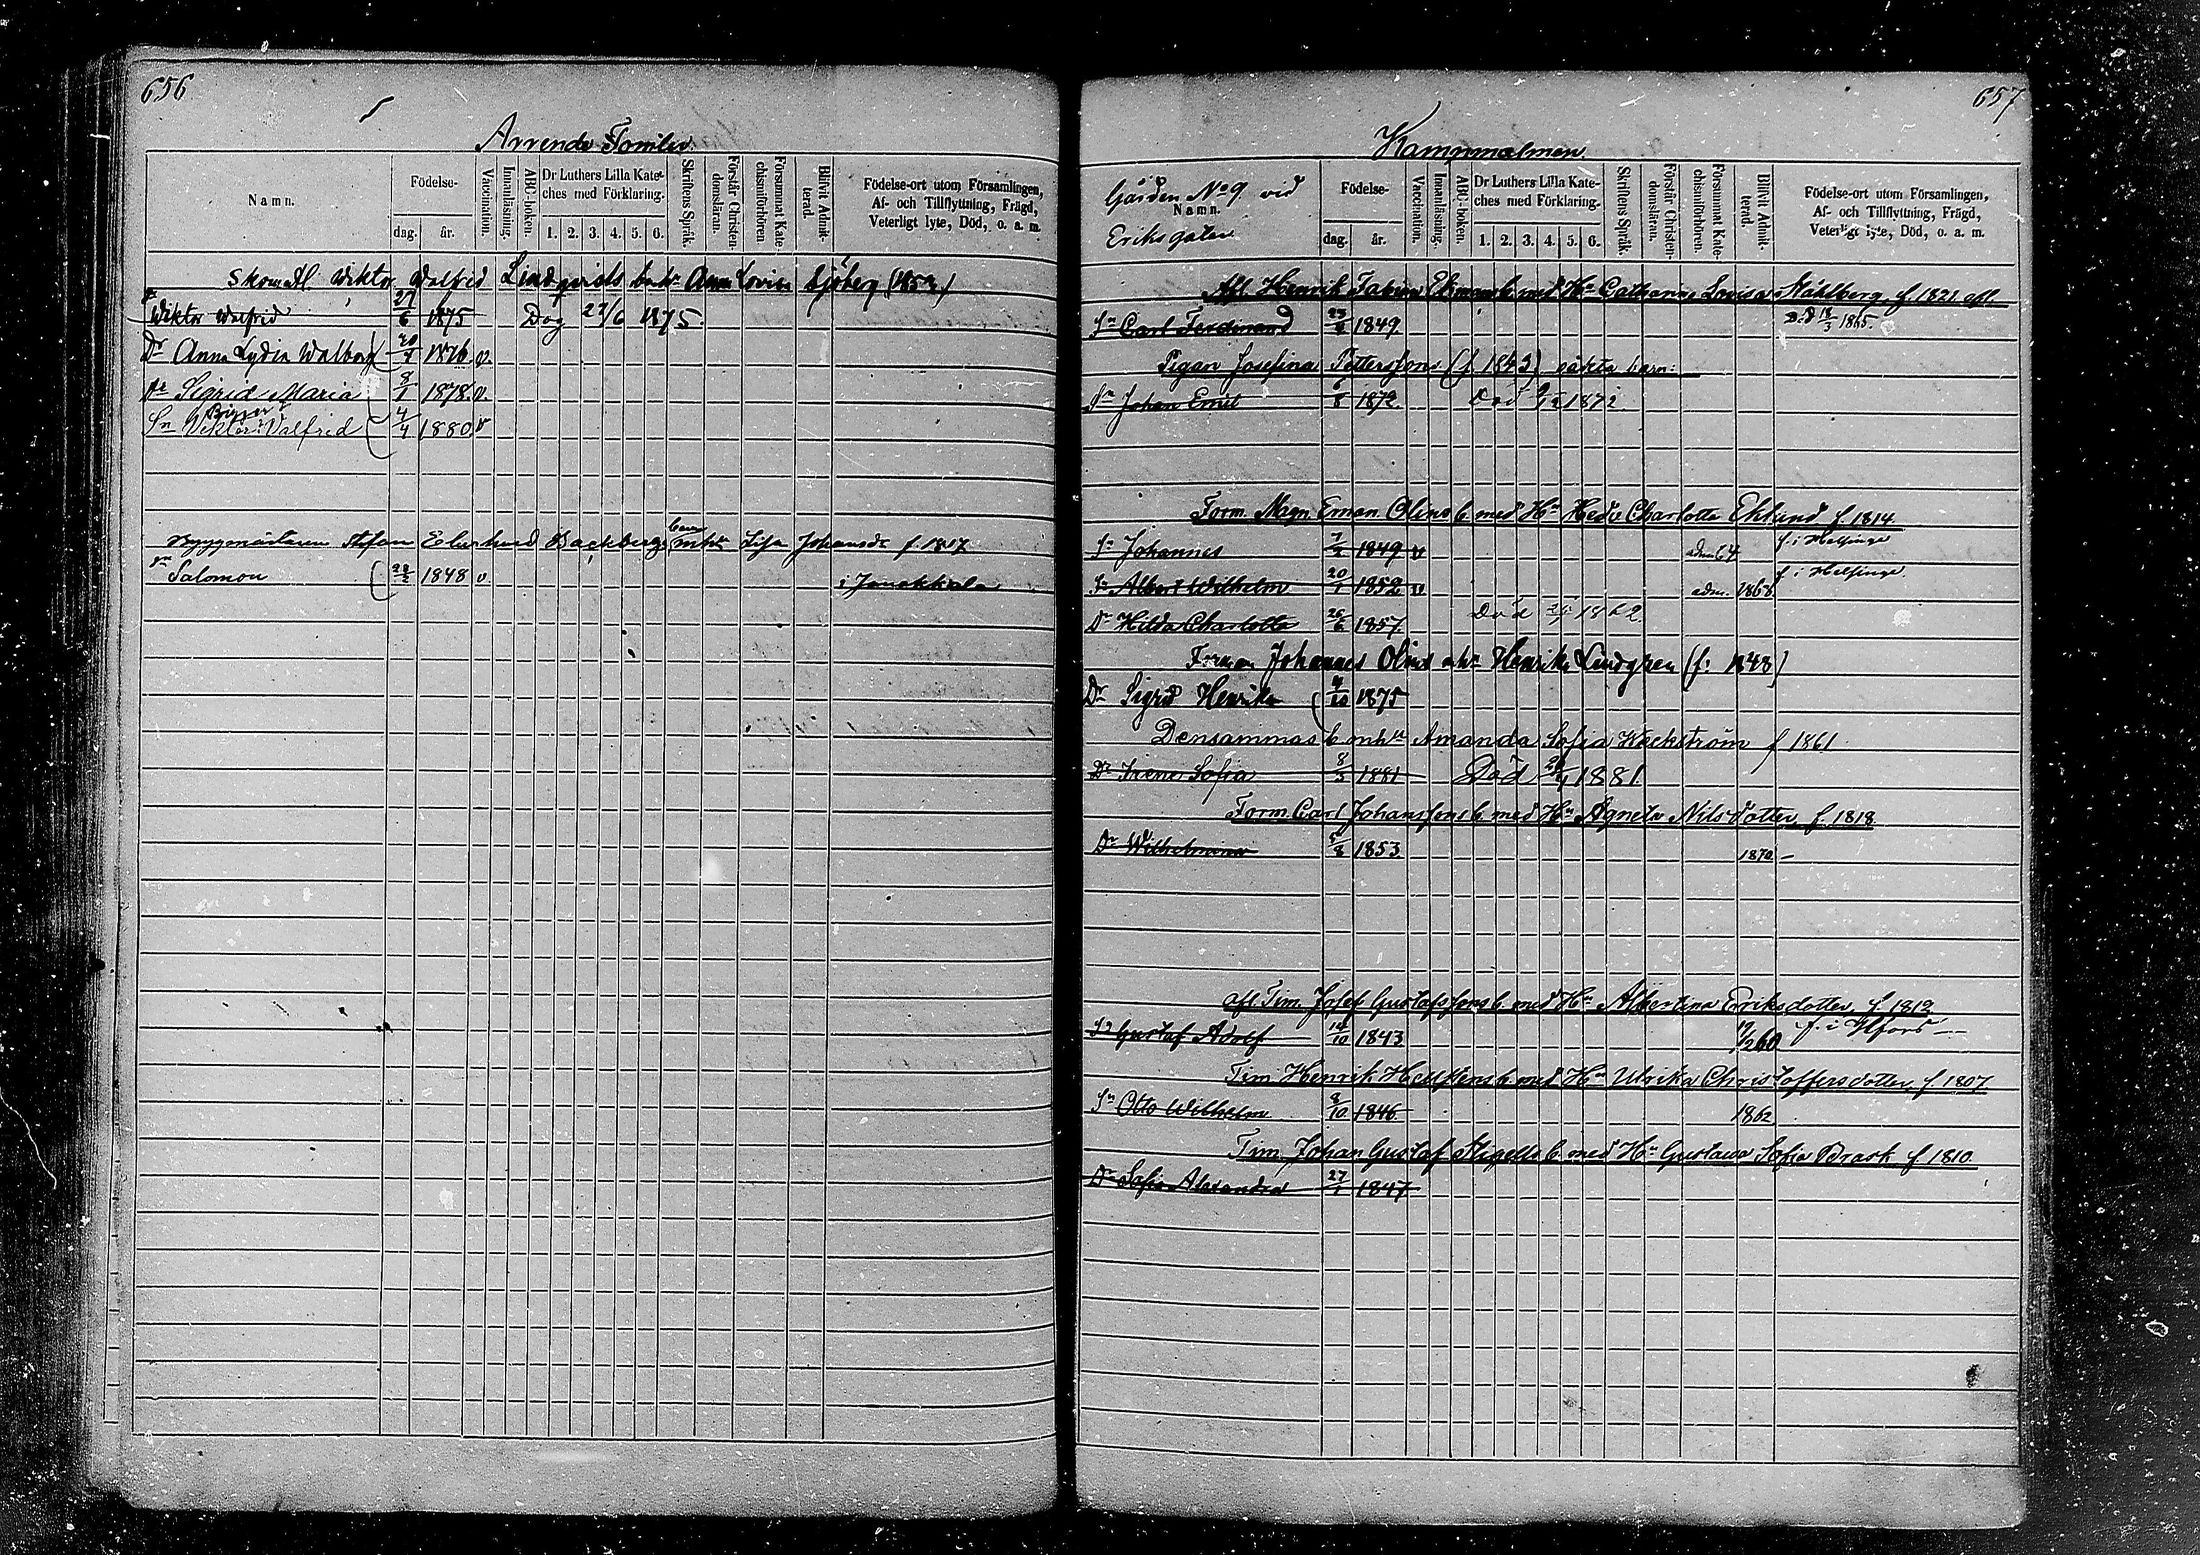 656
Arrende Tomter
Namn.
Födelse-
dag.
år.
Vaccination.
Innanläsning.
ABC-boken.
Dr Luthers Lilla Kate-
ches med Förklaring.
1. 2. 3. 4. 5. 6.
Skriftens Språk.
Förstår Christen-
domsläran.
Försummat Kate-
chismiförhören
Blifvit Admit-
terad.
Födelse-ort utom Församlingen,
Af- och Tillflyttning, Frägd,
Veterligt lyte, Död, o. a. m.
Wiktor Walfrid Lindqvists Anna Lovisa Sjöberg (1853)
Wiktor Walfrid 27/6 1875 Dog 27/6 1875.
Dr Anna Lydia Walborg 20/7 1876 v
Dr Sigrid Maria 8/1 1878 v
Birger
Sn Viktor Valfrid 4/4 1880 v
Byggmästaren Stefan Backbergs barn mhu Lisa Johansdr f 1817
Sn Salomon 1848 v i Janakkala
657
Kampmalmen.
Gården No 9 vid
Namn.
Eriksgatan
Födelse-
dag.
år.
Vaccination.
Innanläsning.
ABC-boken.
Dr Luthers Lilla Kate-
ches med Förklaring.
1. 2. 3. 4. 5. 6.
Skriftens Språk.
Förstår Christen-
domsläran.
Försummat Kate-
chismiförhören.
Blifvit Admit-
terad.
Födelse-ort utom Församlingen,
Af- och Tillflyttning, Frägd,
Veterligt lyte, Död, o. a. m.
Afl. Henrik Fabian Ekmans b med Hu Catharina Lovisa Ståhlberg f. 1821 afl.
Sn Carl Ferdinand 1849 18/3 1865.
Pigan Josefina Petterssons (f. 1843) oäkta barn:
Sn Johan Emil 6/8 1872. Död 1872
Form. Magn. Eman Olins b med Hu Hedv Charlotta Eklund f. 1814
Sn Johannes 1849 v adm 64 f. i Helsinge
Sn Albert Wilhelm 20/1 1852 v adm. 1868 f. i Helsinge.
Dr Hilda Charlotta 26/6 1857. Död 1862
Forman Johannes Olins mhu Henrika Lindgren (f. 1848)
Dr Sigrid Henrika 1875
Densammas b mhu Amanda Sofia Weckström f 1861
Dr Irene Sofia 8/3 1881 Död 1881
Form. Carl Johanssons b med Hu Agneta Nilsdotter f. 1818
Dr Wilhelmina 5/8 1853 1870 -
afl Tim. Josef Gustafssons b med Hu Albertina Eriksdotter f 1813
Sn Gustaf Adolf 14/10 1843 f. i Hfors
Tim Henrik b med Hu Ulrika Christoffersdotter f. 1807
Sn Otto Wilhelm 8/10 1846 1862
Tim. Johan Gustaf Stigells b med Hu Gustava Sofia Brask f 1810
Dr Sofia Alexandra 27/1 1847